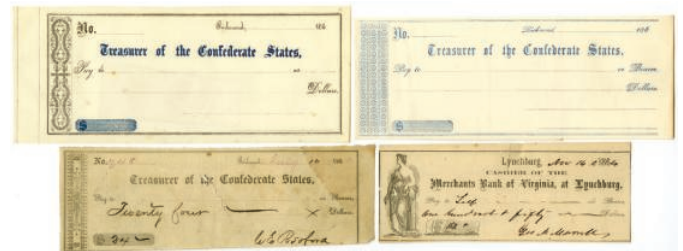 No. Richmond, 186
Treasurer of the Confederate States,
Pay to or
Dollars.
$
No. Richmond, 186
Treasurer of the Confederate States,
Pay to or Bearer,
Dollars.
$
No. 186
Treasurer of the Confederate States,
Pay to or Bearer,
Twenty four Dollars
$ 24
Lynchburg, Nov 14 186
CASHIER OF THE
Merchants Bank of Virginia, at Lynchburg,
Pay to Self or Bearer
One hundred & fifty Dollars
$